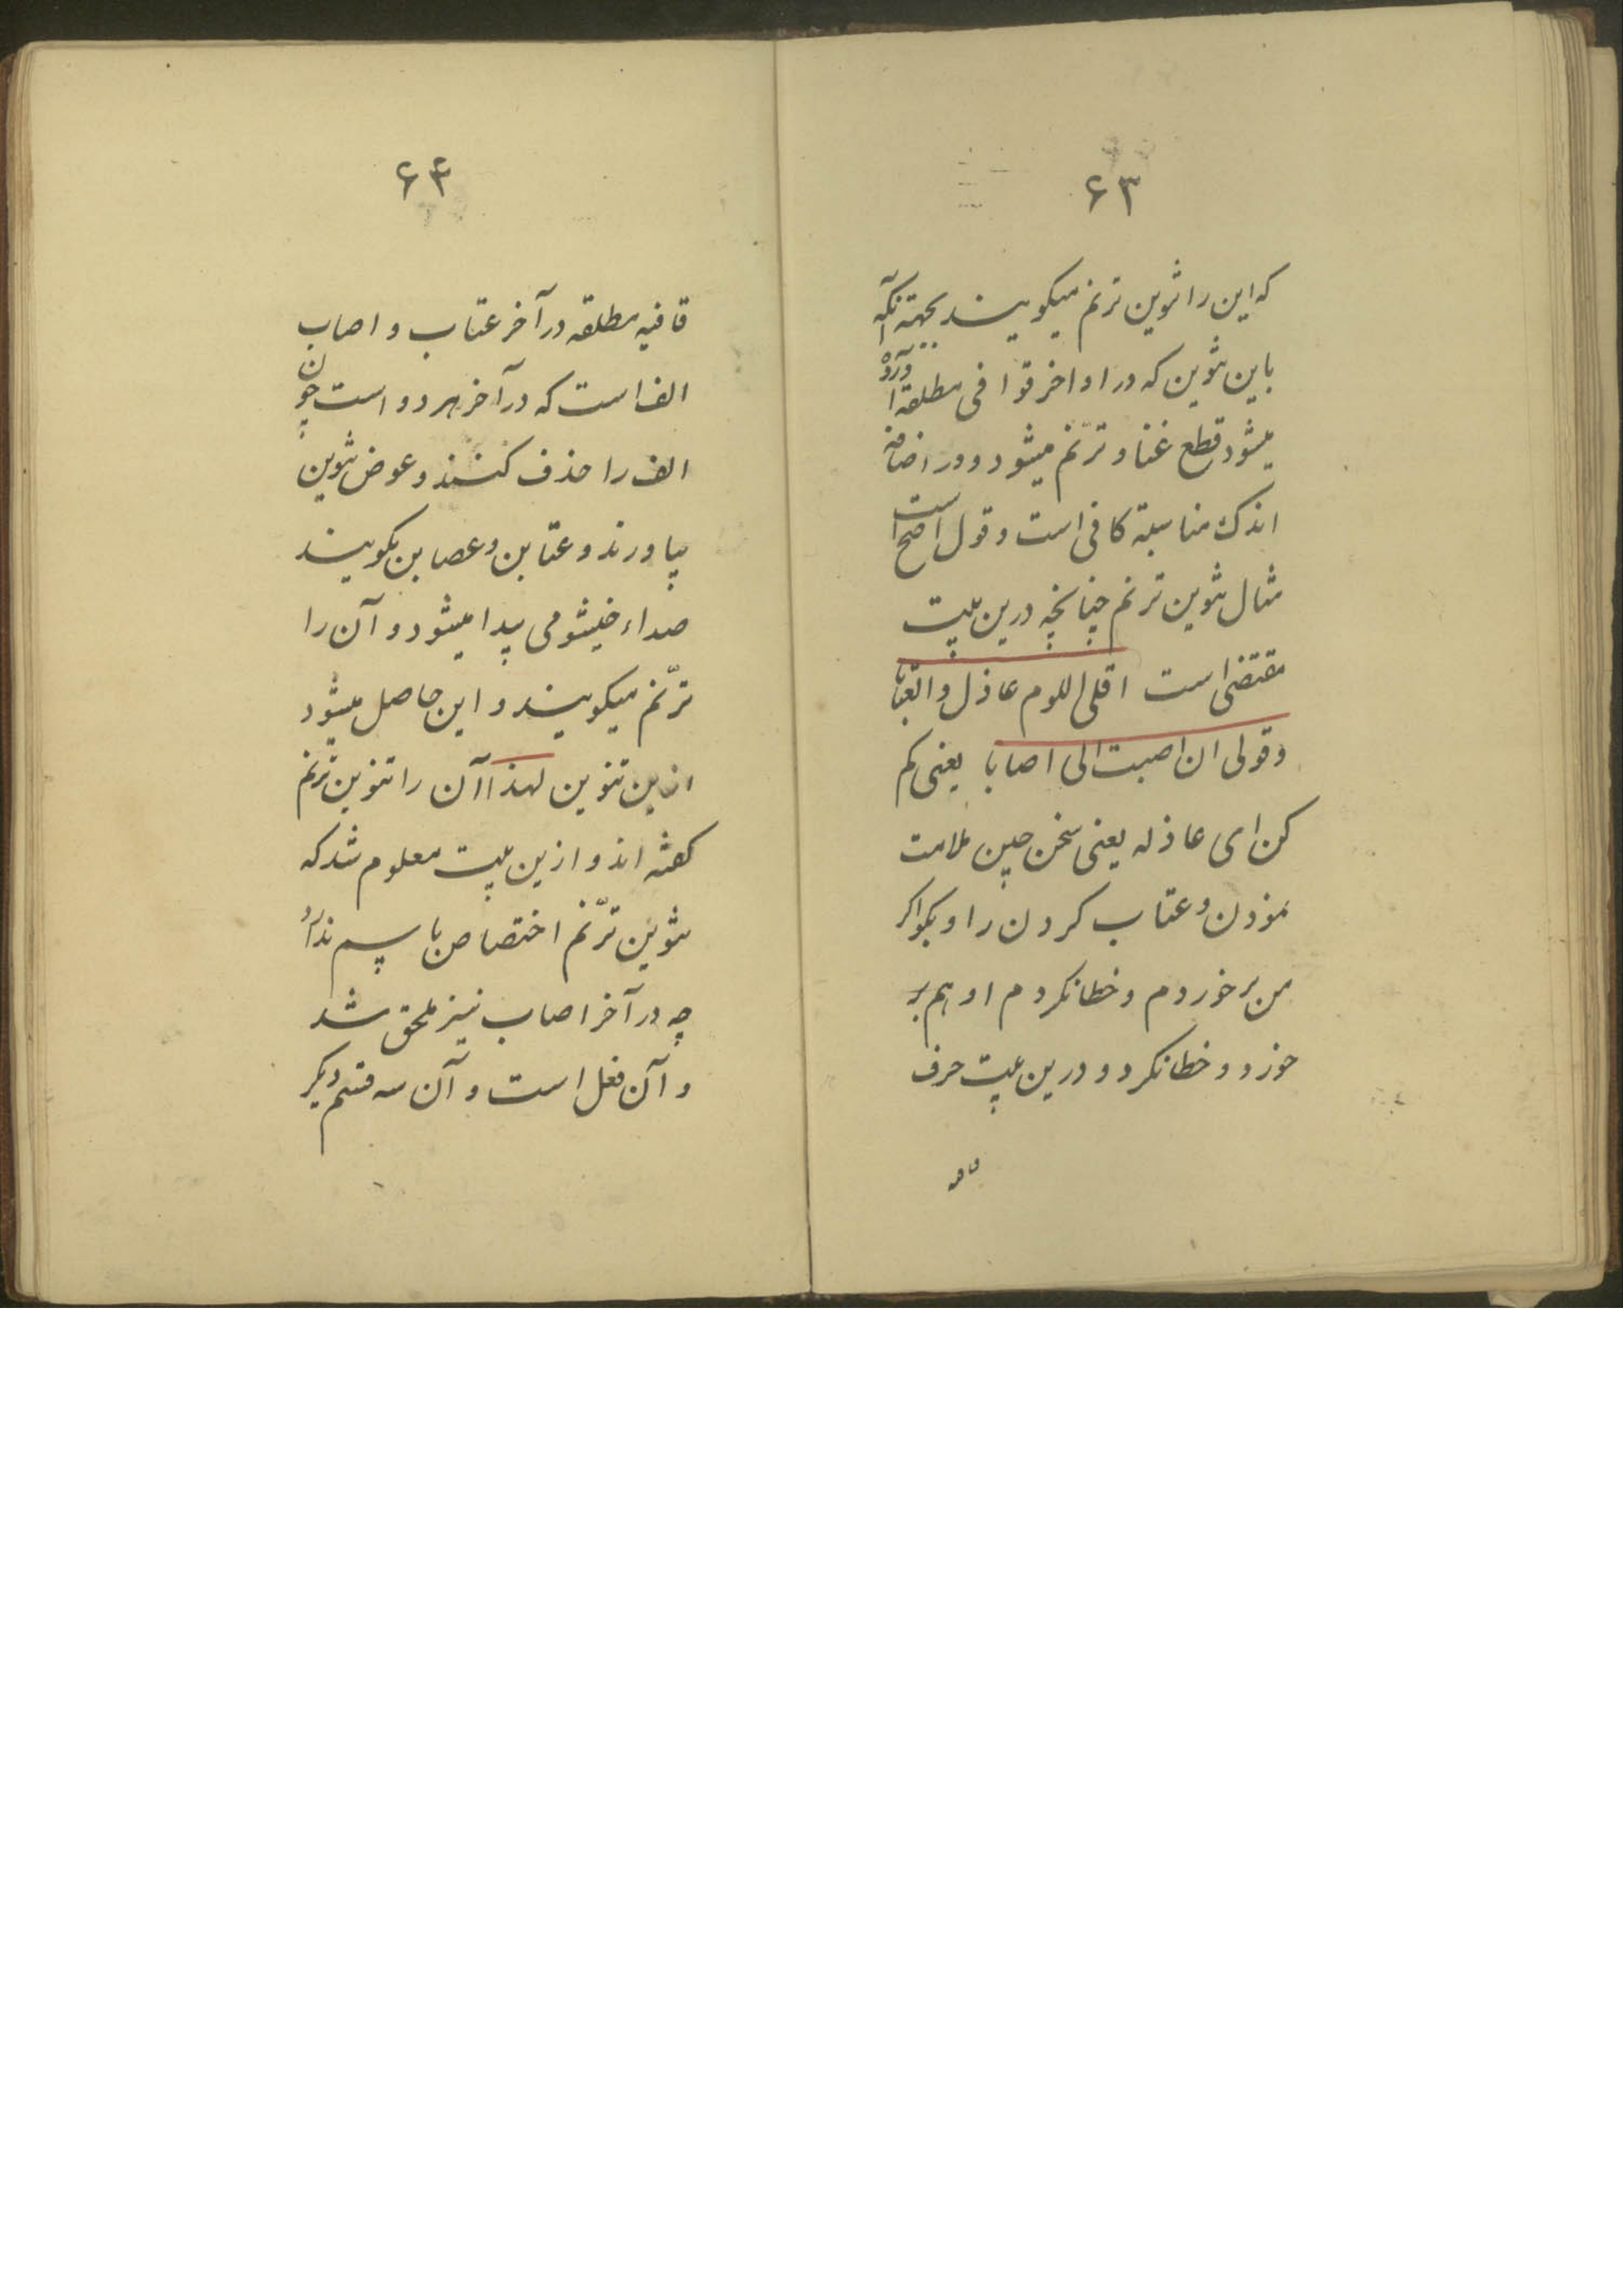 ۶۳
که این را تنوین ترنم میکویند بجهة آنکه
باین تنوین که در اواخر قوافی مطلقه آورده
میشود قطع غنا و ترنم میشود و در اضافه
اندک مناسبة کافی است و قول اصح است
مثال تنوین ترنم چنانچه درین بیت
مقتضی است اقلی اللوم عاذل والعتابا
وقولی ان اصبت الی اصابا یعنی کم
کن ای عاذله یعنی سخن چین ملامت
نمودن و عتاب کردن را و بکو اکر
من برخوردم و خطا نکردم او هم بر
خورد و خطا نکرد و درین بیت حرف
۶۴
قافیه مطلقه در آخر عتاب و اصاب
الف است که در آخر هر دو است چون
الف را حذف کنند و عوض تنوین
بیاورند و عتابن و عصابن بکویند
صداء خیشومی پیدا میشود و آن را
ترنّم میکویند و این حاصل میشود
ازین تنوین لهذا آن را تنوین ترنم
کفته اند و ازین بیت معلوم شد که
تنوین ترنّم اختصاص باسم ندارد
چه در آخر اصاب نیز ملحق شد
و آن فعل است و آن سه قسم دیکر